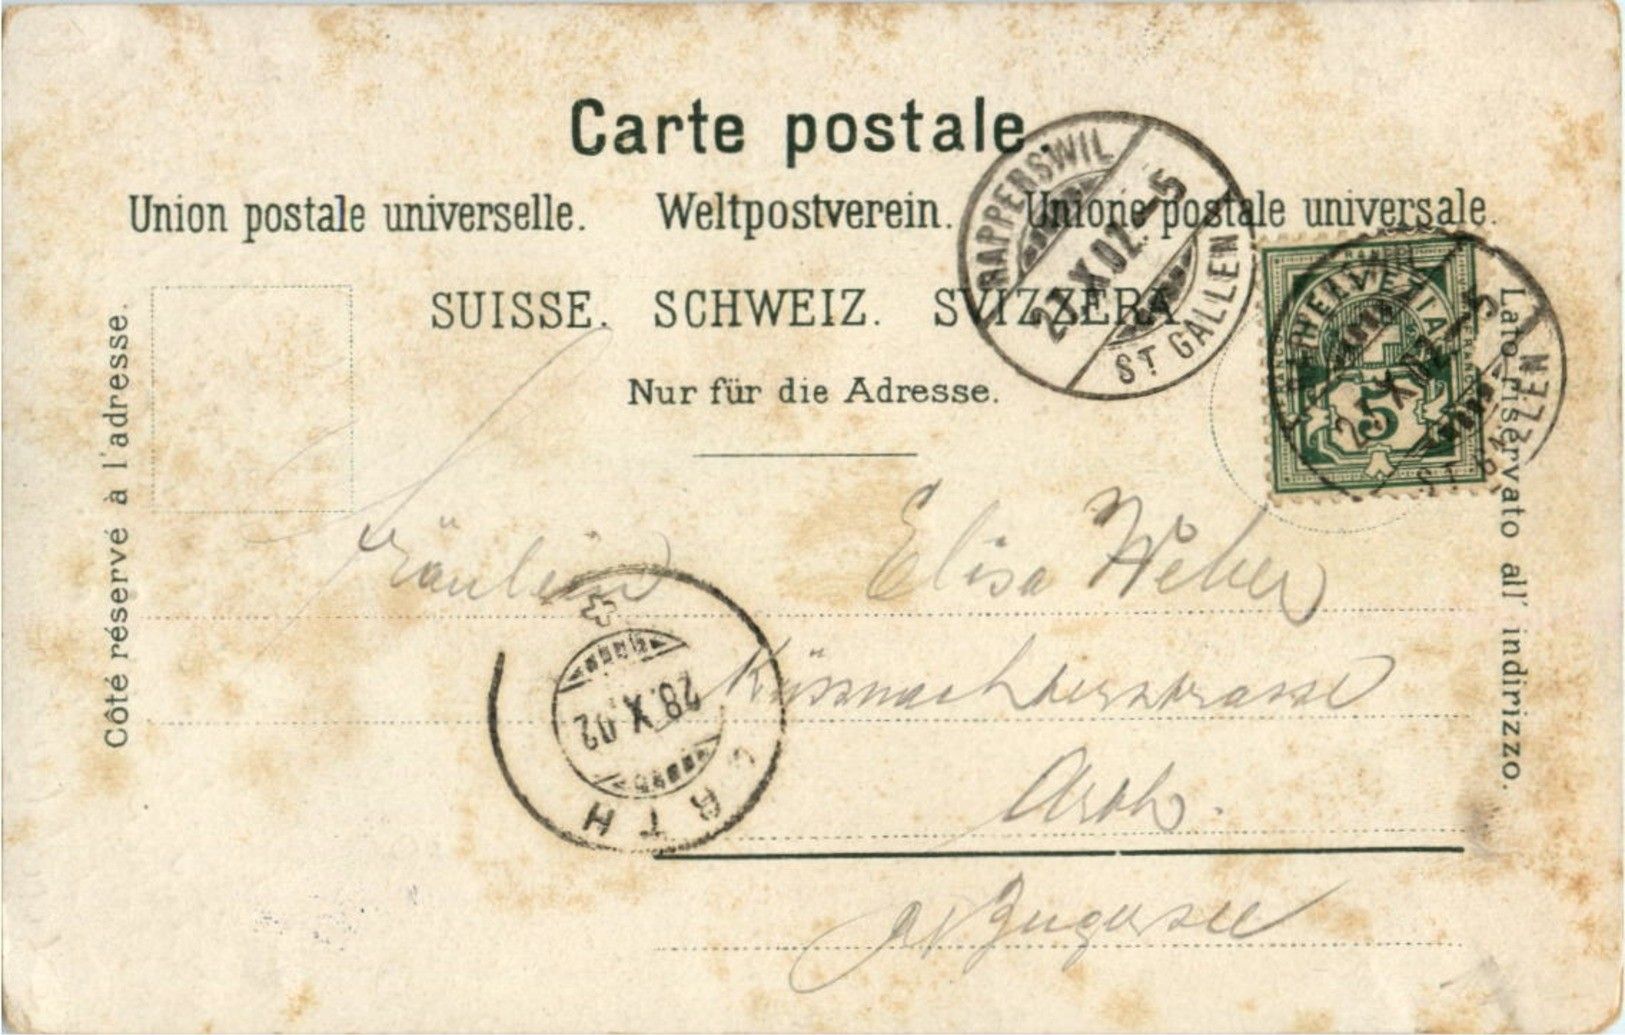 Carte postale.
Union postale universelle. Weltpostverein. Unione postale universale.
SUISSE. SCHWEIZ. SVIZZERA
Nur für die Adresse.
Côté réservé à l'adresse.
Lato riservato all' indirizzo.
RAPPERSWIL
27.X.02.-5
ST. GALLEN
HELVETIA
FRANCO
5
X.02.-5
Fräulein Elisa Weber
Küssnachterstrasse
Arth.
Zugersee
28.X.02
ARTH